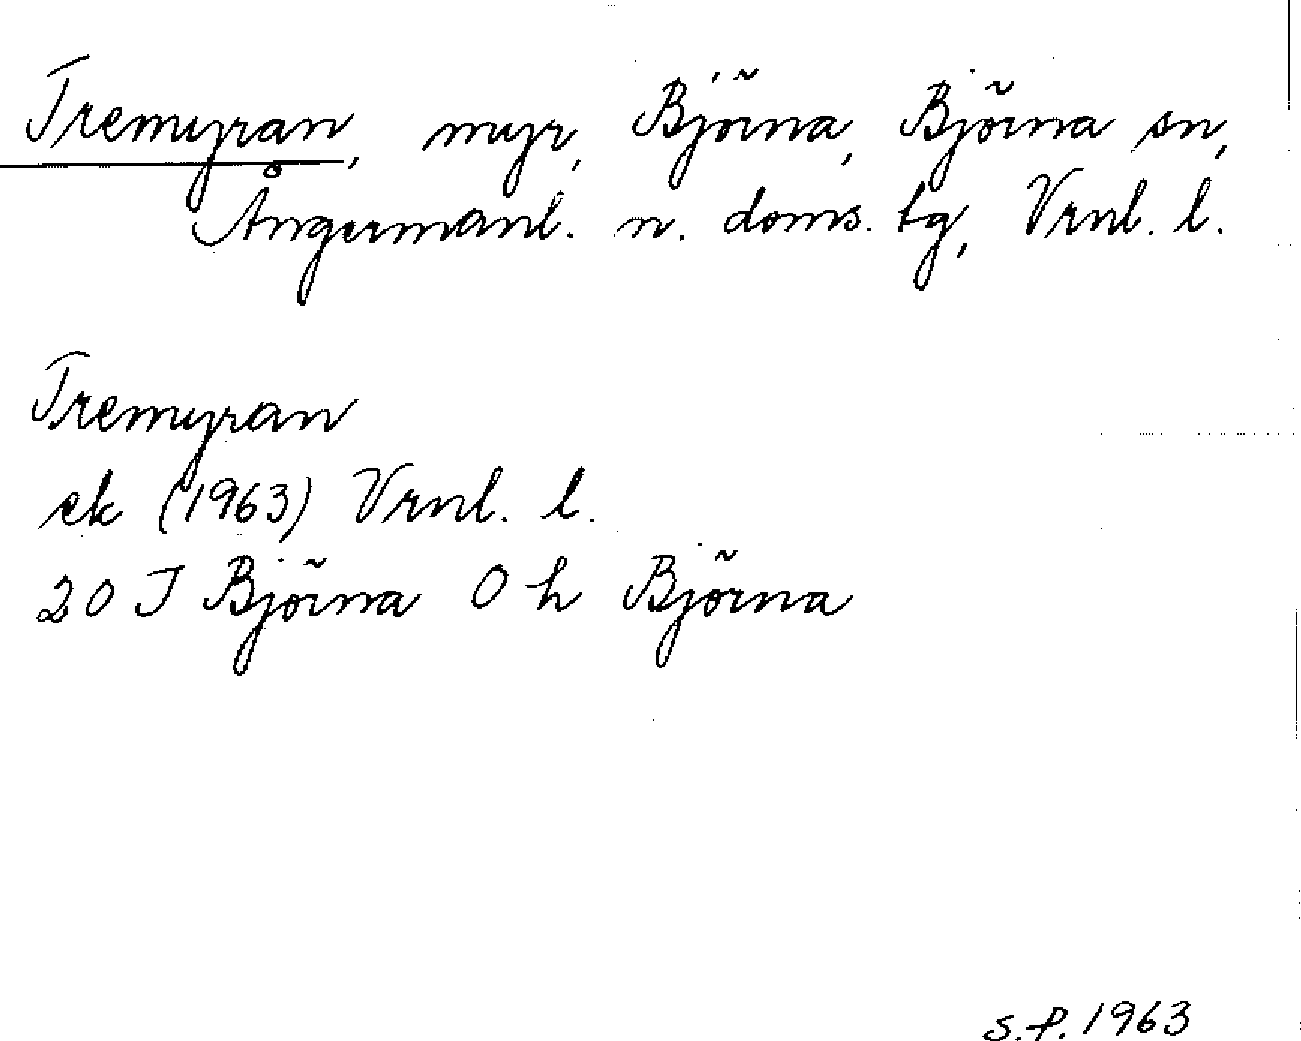 Tremyran, myr, Björna, Björna sn,
Ångermanl. n. doms. tg, Vrnl. l.
Tremyran
ek (1963) Vrnl. l.
20 J Björna 0 h Björna
S.P. 1963